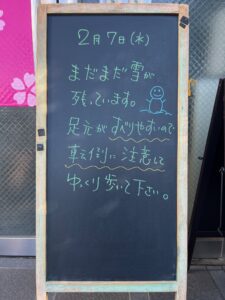 2月7日(水)
まだまだ雪が
残っています。
足元がすべりやすいので
転倒に注意して
ゆっくり歩いて下さい。